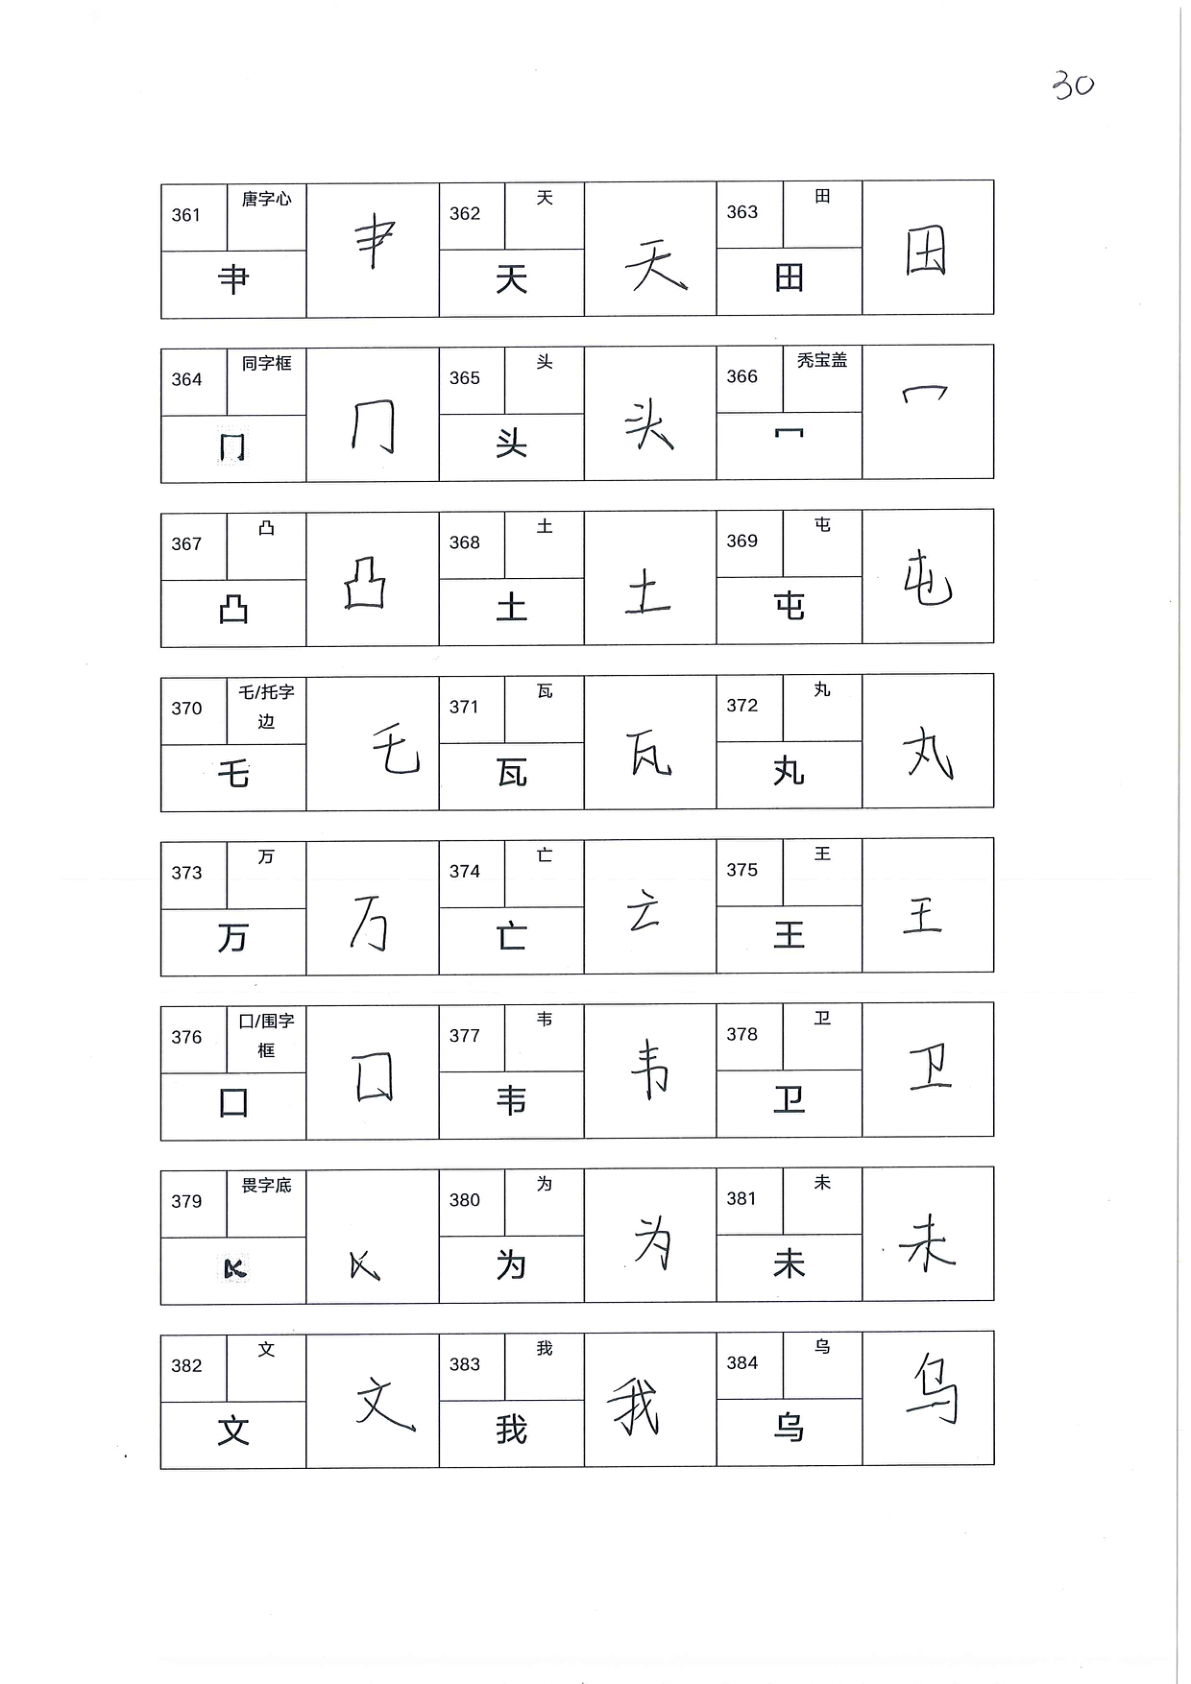 30
361 唐字心 肀 362 天 天 363 田 田
肀 天 田
364 同字框 冂 365 头 头 366 秃宝盖 冖
冂 头 冖
367 凸 凸 368 土 土 369 屯 屯
凸 土 屯
370 乇/托字边 乇 371 瓦 瓦 372 丸 丸
乇 瓦 丸
373 万 万 374 亡 亡 375 王 王
万 亡 王
376 囗/围字框 囗 377 韦 韦 378 卫 卫
囗 韦 卫
379 畏字底 380 为 为 381 未 未
为 未
382 文 文 383 我 我 384 乌 乌
文 我 乌